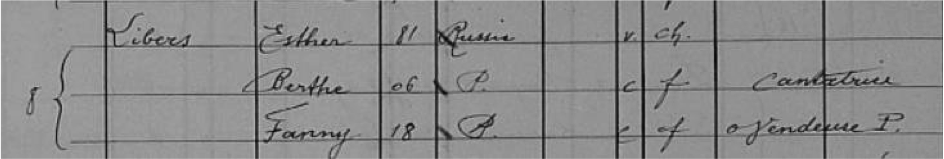 Libers Esther 81 Russie v. ch.
8 Berthe 06 P. c f Cantatrice
Fanny 18 P. c f Vendeuse P.